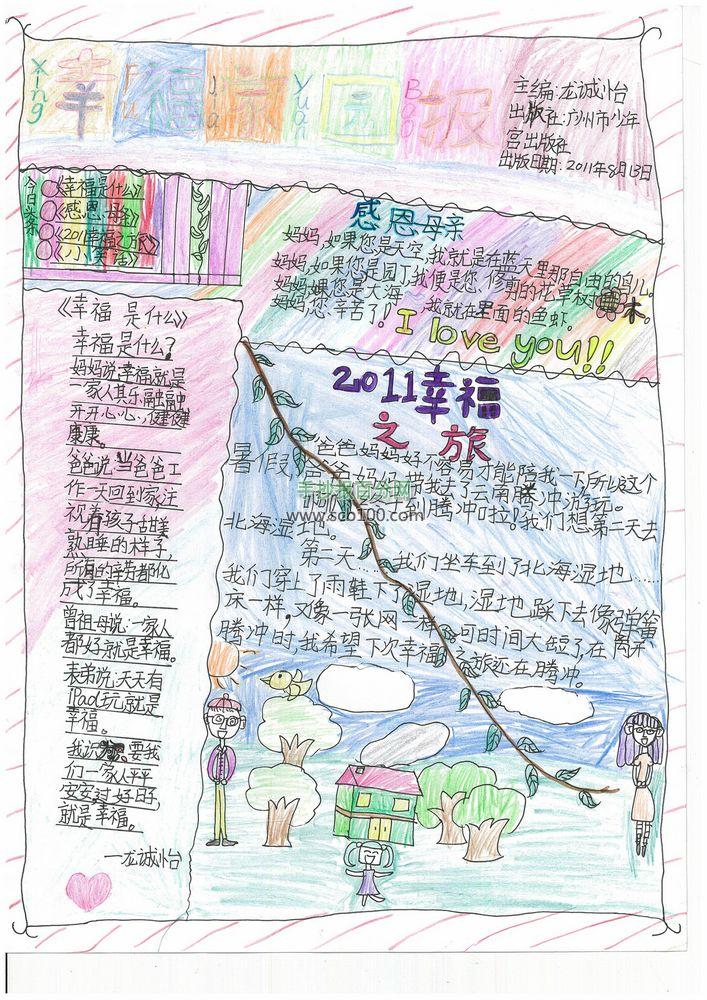 Xing Fu Jia Yuan Bao
幸福家园报
主编:龙诚怡
出版社:广州市少年
宫出版社
出版日期:2011年8月13日
今日头条
《幸福是什么》
《感恩母亲》
《2011幸福之旅》
感恩母亲
妈妈,如果您是天空,我就是在蓝天里那自由的鸟儿。
妈妈,如果您是园丁,我便是您修剪的花草树木。
妈妈,如果您是大海,我就在里面的鱼虾。
妈妈,您辛苦了!
I love you!!
《幸福是什么》
幸福是什么?
妈妈说幸福就是
一家人其乐融融
开开心心,健健
康康。
爸爸说,当爸爸工
作一天回到家,注
视着孩子甜美
熟睡的样子,
所有的辛劳都化
成了幸福。
曾祖母说:一家人
都好就是幸福。
表弟说:天天有
IPad玩就是
幸福。
我认为,要我
们一家人平平
安安过好日子,
就是幸福。
—龙诚怡
2011幸福
之旅
暑假,爸爸妈妈好不容易才能陪我一下,所以这个
爸爸妈妈带我去了云南腾冲游玩。
到腾冲啦!我们想第二天去
北海湿地。
第二天……我们坐车到了北海湿地……
我们穿上了雨鞋下了湿地,湿地踩下去像弹簧
床一样,又像一张网一样。可时间太短了,在离开
腾冲时,我希望下次幸福之旅还在腾冲。
手抄报资源网
www.scb100.com